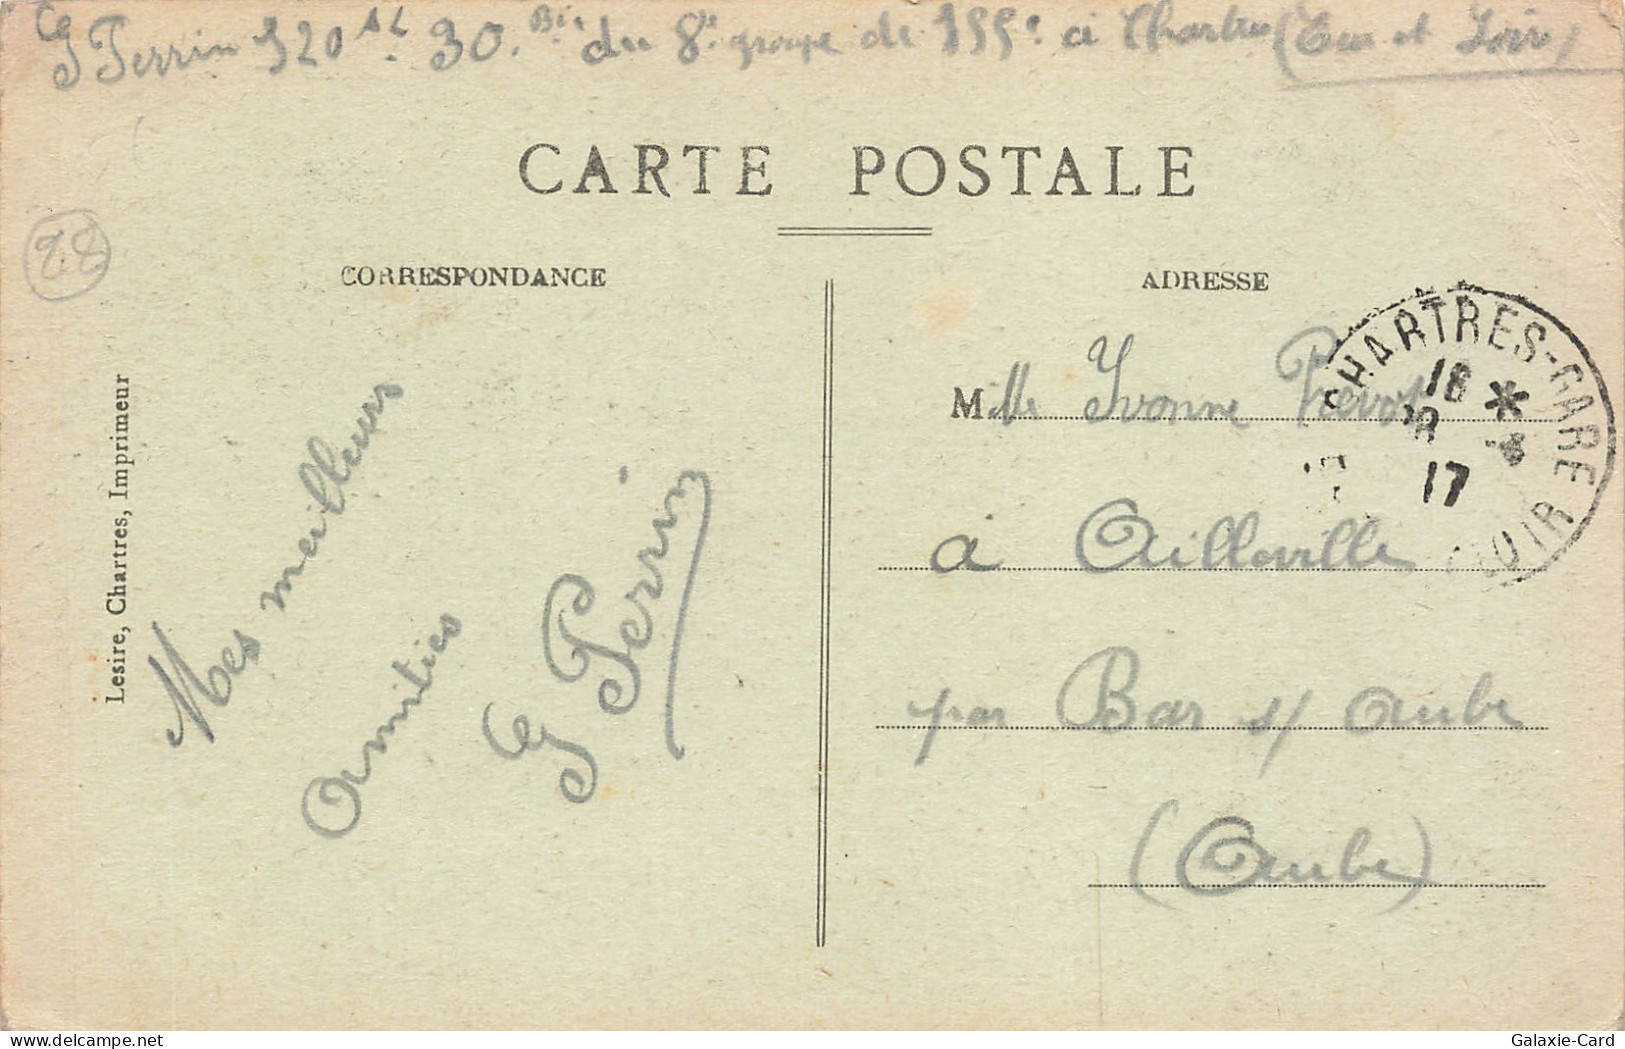 G Perrin 320 AL 30. Bie du 8e groupe de 155c à Chartres (Eure et Loir)
CARTE POSTALE
28
CORRESPONDANCE
ADRESSE
Lesire, Chartres, Imprimeur
Mes meilleurs
Amitiés
G Perrin
Mlle Yvonne Prévost
à Ailleville
par Bar s/ Aube
(Aube)
CHARTRES-GARE
18 *
17
LOIR
Galaxie-Card